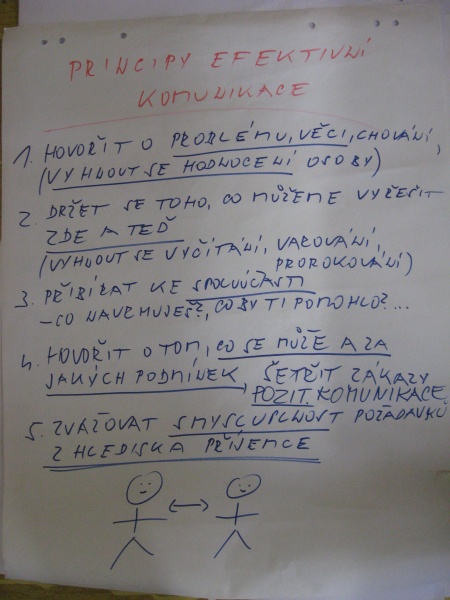 PRINCIPY EFEKTIVNÍ
KOMUNIKACE
1. HOVOŘIT O PROBLÉMU, VĚCI, CHOVÁNÍ,
(VYHNOUT SE HODNOCENÍ OSOBY)
2. DRŽET SE TOHO, CO MŮŽEME VYŘEŠIT
ZDE A TEĎ
(VYHNOUT SE VYČÍTÁNÍ, VAROVÁNÍ,
PROROKOVÁNÍ)
3. PŘIBÍRAT KE SPOLUÚČASTI
- CO NAVRHUJEŠ?, CO BY TI POMOHLO? ...
4. HOVOŘIT O TOM, CO SE MŮŽE A ZA
JAKÝCH PODMÍNEK → ŠETŘIT ZÁKAZY
POZIT. KOMUNIKACE
5. ZVAŽOVAT SMYSLUPLNOST POŽADAVKŮ
Z HLEDISKA PŘÍJEMCE